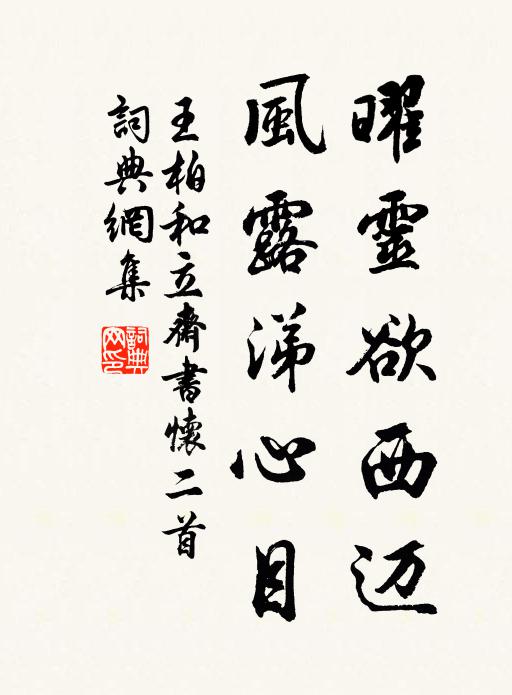 曜靈欲西迈
風露涕心目
王柏和立齋書懷二首
詞典網集
詞典網印